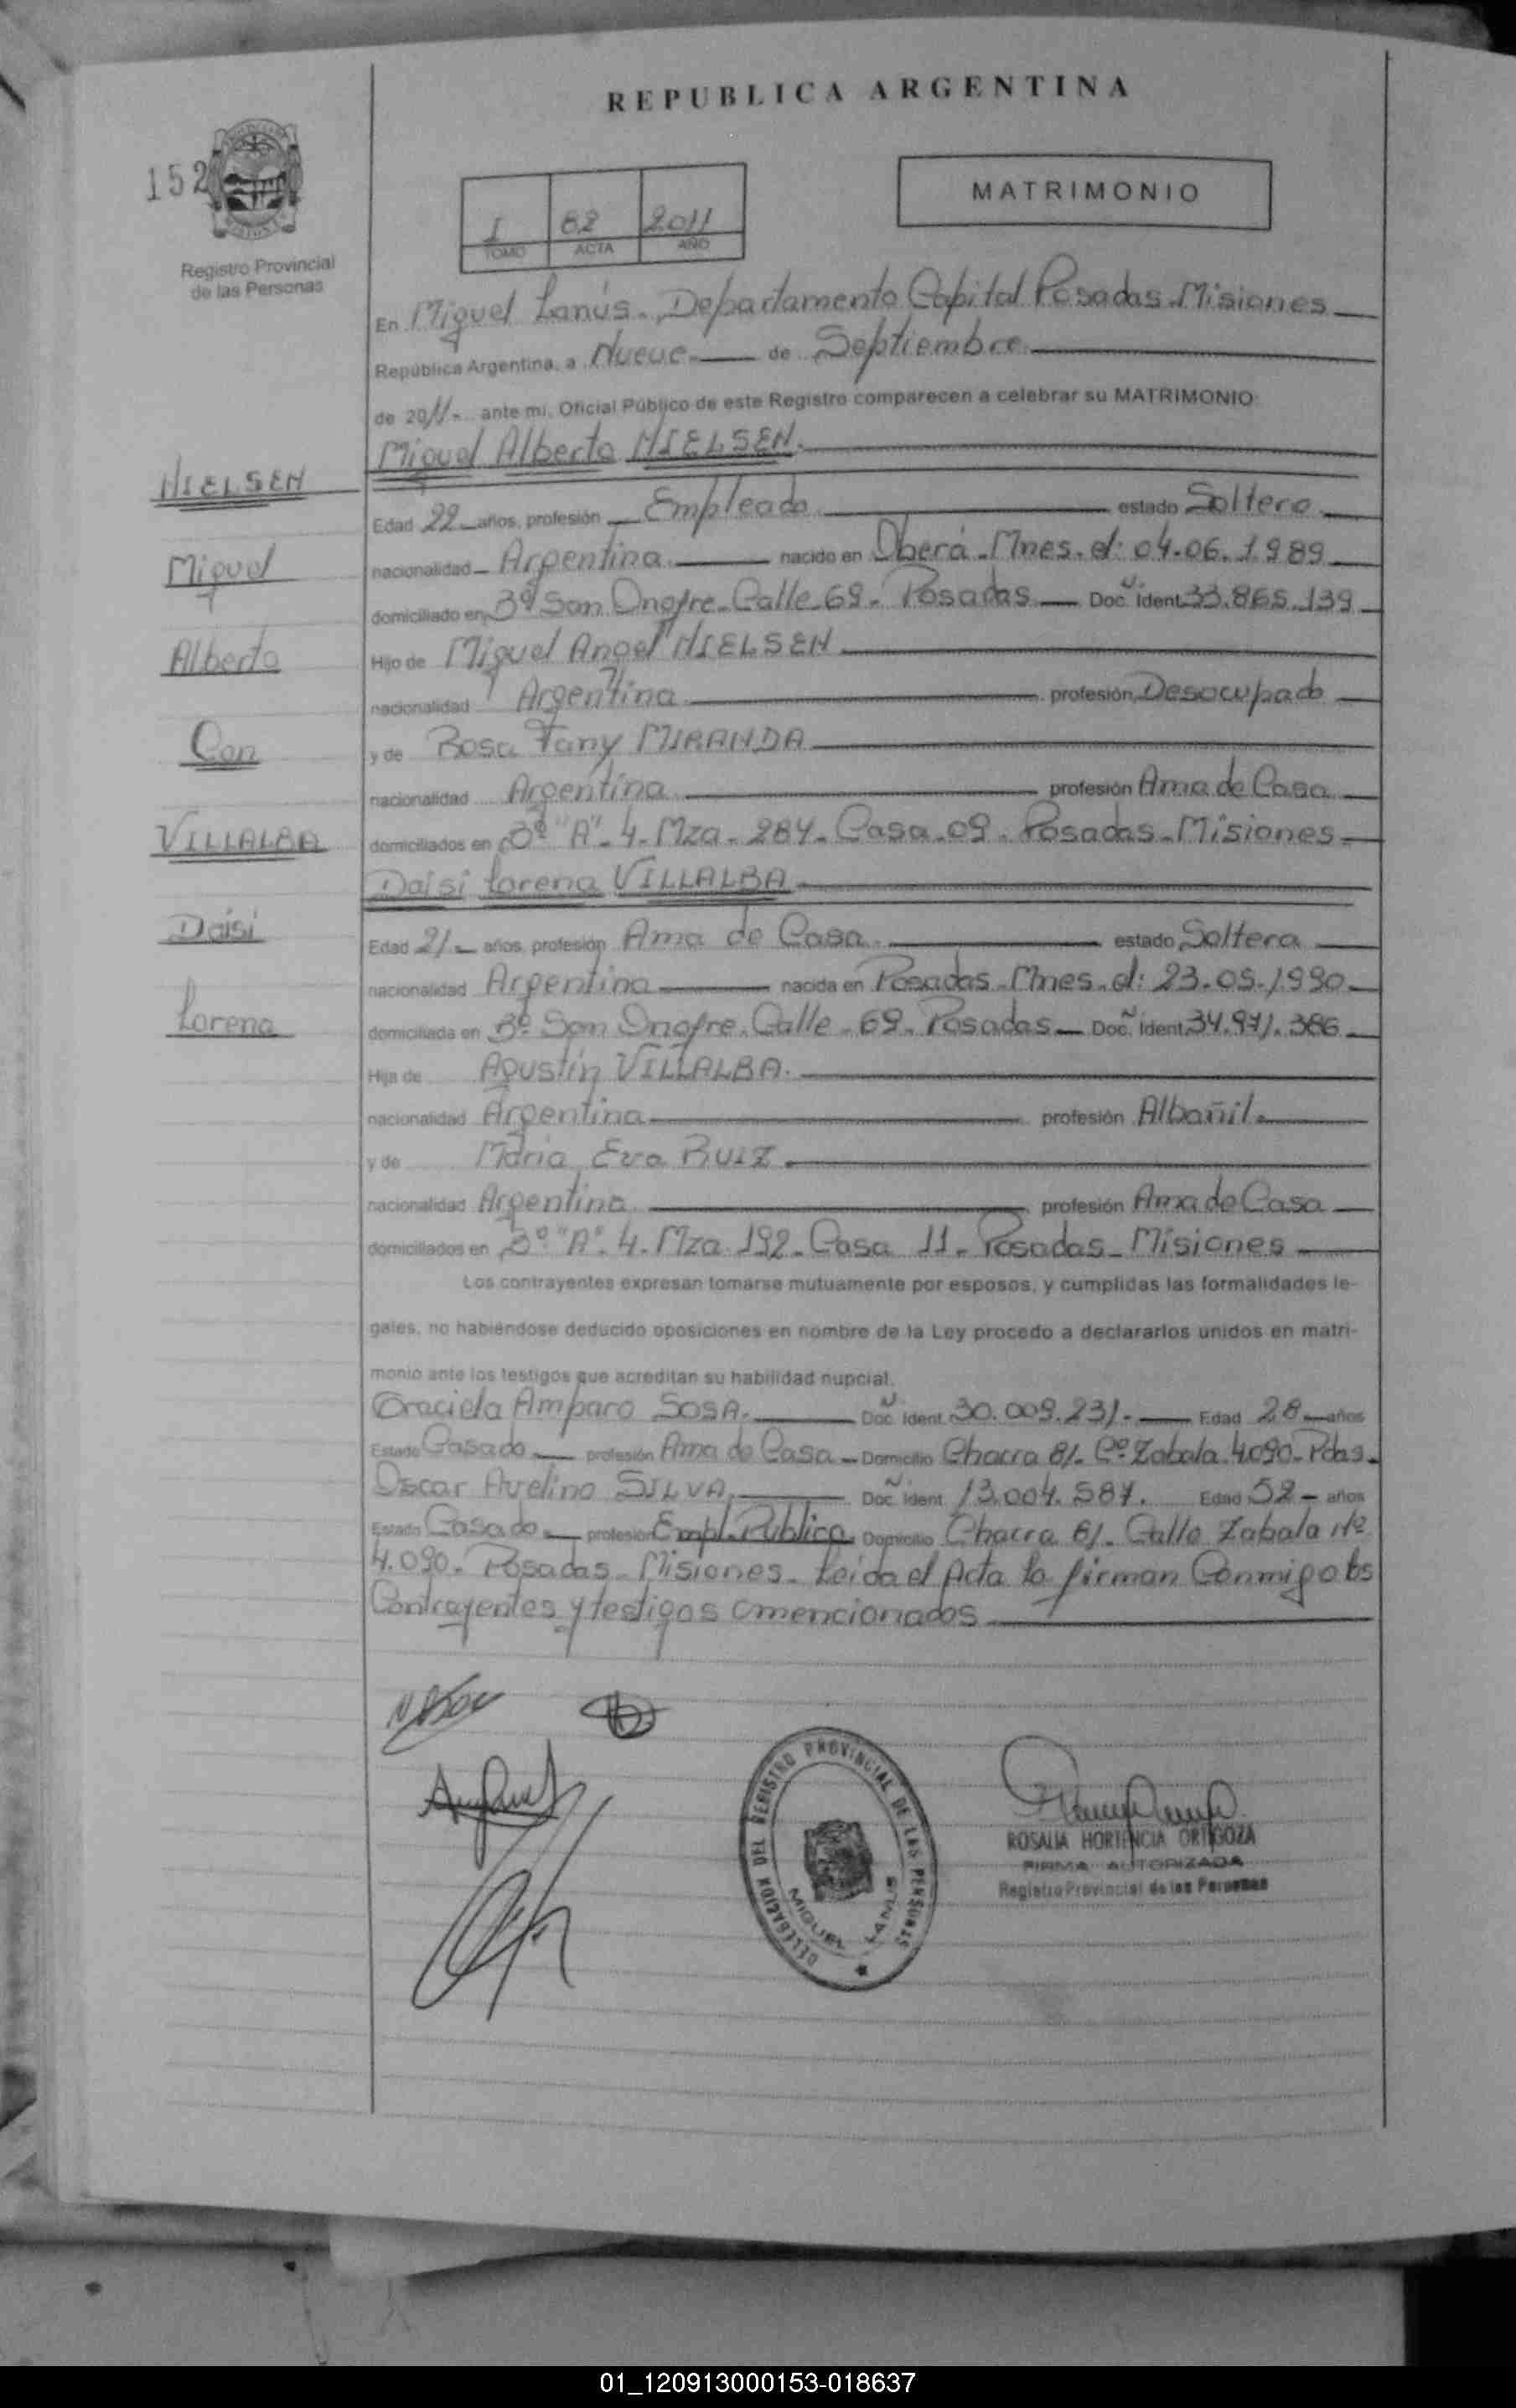 REPUBLICA ARGENTINA
152
MATRIMONIO
I 62 2011
TOMO ACTA AÑO
Registro Provincial
de las Personas
En Miguel Lanús.-Departamento Capital Posadas-Misiones
República Argentina, a Nueve- de Septiembre
de 2011- ante mi, Oficial Público de este Registro comparecen a celebrar su MATRIMONIO:
Miguel Alberto NIELSEN.
NIELSEN
Edad 22 años, profesión Empleado estado Soltero
Miguel
nacionalidad Argentina nacido en Oberá-Mnes. el: 04.06.1989
domiciliado en Bº San Onofre-Calle 69- Posadas Doc. Ident. 33.865.139
Alberto
Hijo de Miguel Angel NIELSEN
nacionalidad Argentina profesión Desocupado
Con
y de Rosa Fany MIRANDA
nacionalidad Argentina profesión Ama de Casa
VILLALBA
domiciliados en Bº "A"-4-Mza-284-Casa-09-Posadas-Misiones-
Daisi Lorena VILLALBA
Daisi
Edad 21- años, profesión Ama de Casa estado Soltera
nacionalidad Argentina nacida en Posadas-Mnes. el: 23-05-1990
Lorena
domiciliada en Bº San Onofre-Calle-69-Posadas Doc. Ident. 34.971.386
Hija de Agustín VILLALBA.
nacionalidad Argentina profesión Albañil.
y de María Eva RUIZ
nacionalidad Argentina profesión Ama de Casa
domiciliados en Bº "A"-4-Mza 192-Casa 11-Posadas-Misiones
Los contrayentes expresan tomarse mutuamente por esposos, y cumplidas las formalidades le-
gales, no habiéndose deducido oposiciones en nombre de la Ley procedo a declararlos unidos en matri-
monio ante los testigos que acreditan su habilidad nupcial.
Graciela Amparo SOSA. Doc. Ident. 30.009.231.- Edad 28 años
Estado Casado profesión Ama de Casa- Domicilio Chacra 81- Cº Zabala 4090-Pdas.
Oscar Avelino SILVA. Doc. Ident. 13.004.587. Edad 52- años
Estado Casado profesión Empl. Pública Domicilio Chacra 81- Calle Zabala Nº
4.090- Posadas-Misiones- Leida el Acta la firman Conmigo los
Contrayentes y testigos amencionados
DELEGACION DEL REGISTRO PROVINCIAL DE LAS PERSONAS
MIGUEL LANUS
ROSALIA HORTENCIA ORTIGOZA
FIRMA AUTORIZADA
Registro Provincial de las Personas
01_120913000153-018637